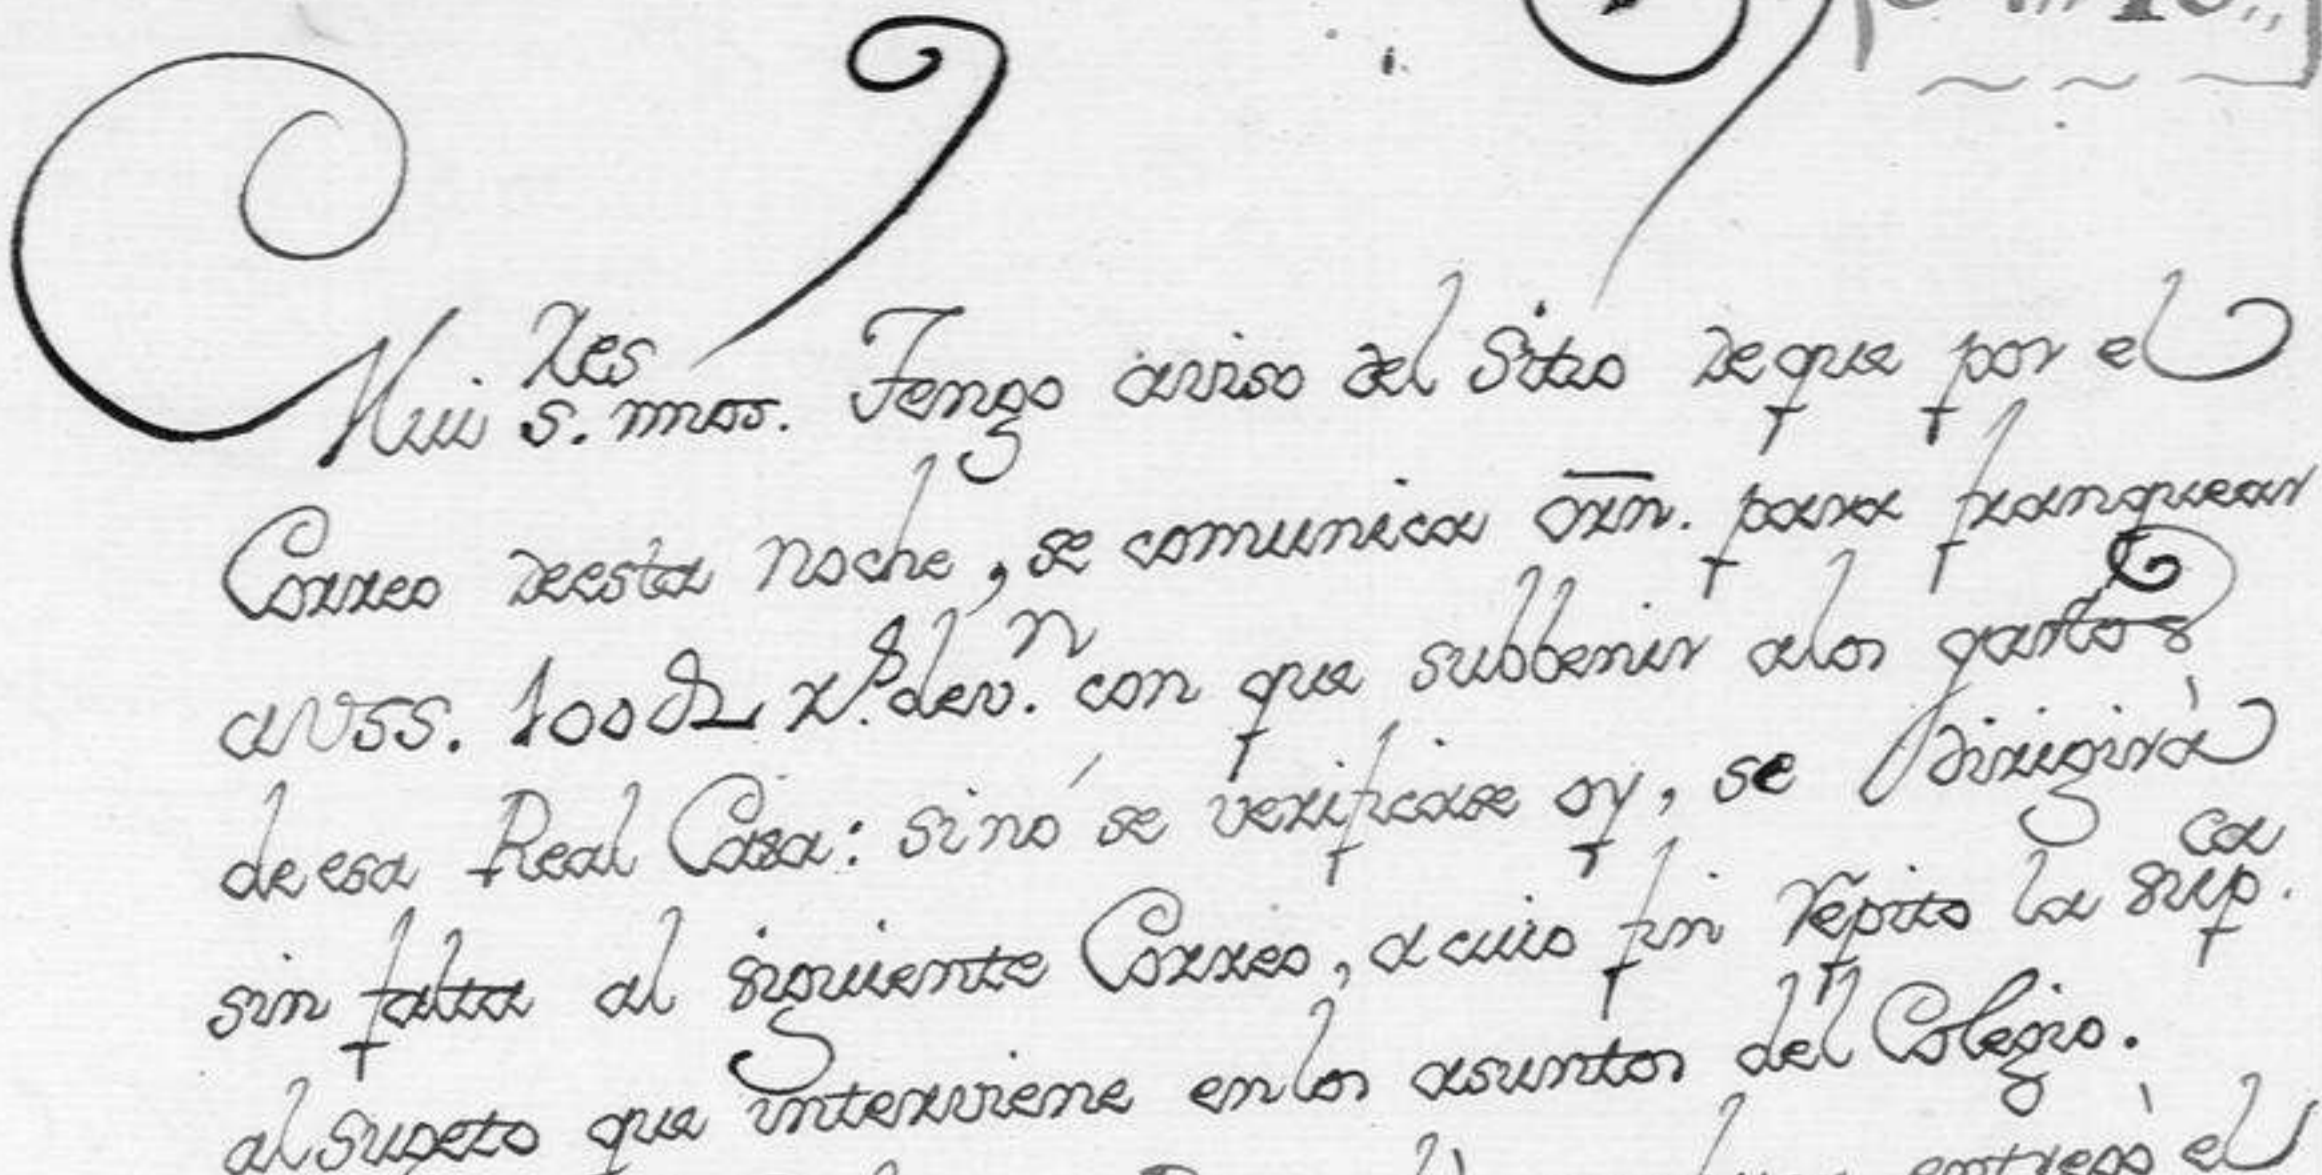 Mui S.res mios. Tengo aviso del Sitio deque por el
Correo deesta noche, se comunica orn. para franquear
aVSS. 100 r.s dev.n con que subbenir alos gastos
deesa Real Casa: sinó se verificase oy, se dirigirà
sin falta al siguiente Correo, acuio fin repito la sup.ca
alsugeto que interviene enlos asuntos del Colegio.
entregò el